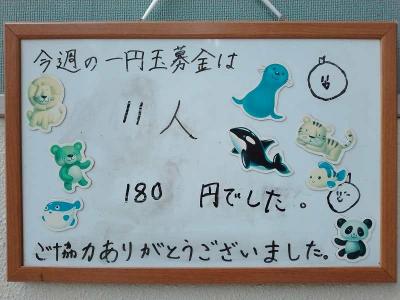 今週の一円玉募金は
11人
180 円でした。
ご協力ありがとうございました。